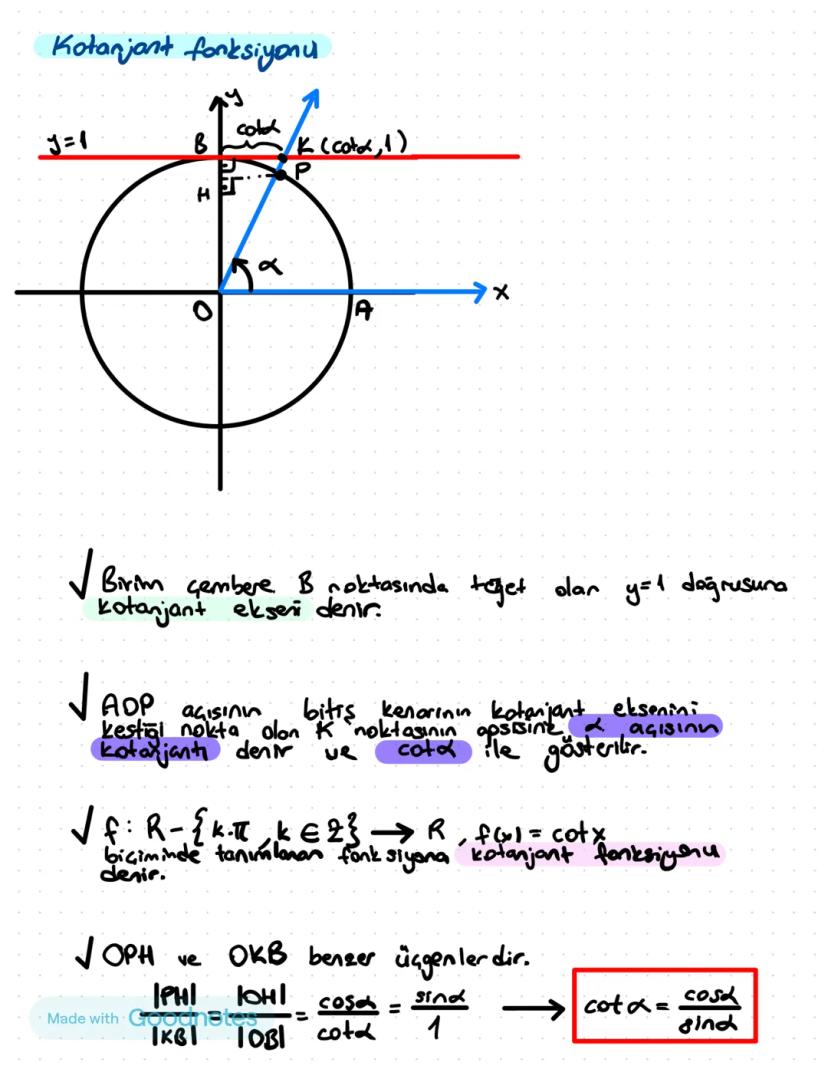 Kotanjant fonksiyonu
y
cotα
y=1
B
K (cotα, 1)
P
H
α
O
A
x
√ Birim çembere B noktasında teğet olan y=1 doğrusuna
kotanjant ekseni denir.
√ AOP açısının bitiş kenarının kotanjant eksenini
kestiği nokta olan K noktasının apsisine α açısının
kotanjantı denir ve cotα ile gösterilir.
√ f: R-{k.π, k ∈ Z} → R, f(x) = cotx
biçiminde tanımlanan fonksiyona kotanjant fonksiyonu
denir.
√ OPH ve OKB benzer üçgenlerdir.
|PH|/|KB| = |OH|/|OB| = cosα/cotα = sinα/1 → cotα = cosα/sinα
Made with Goodnotes